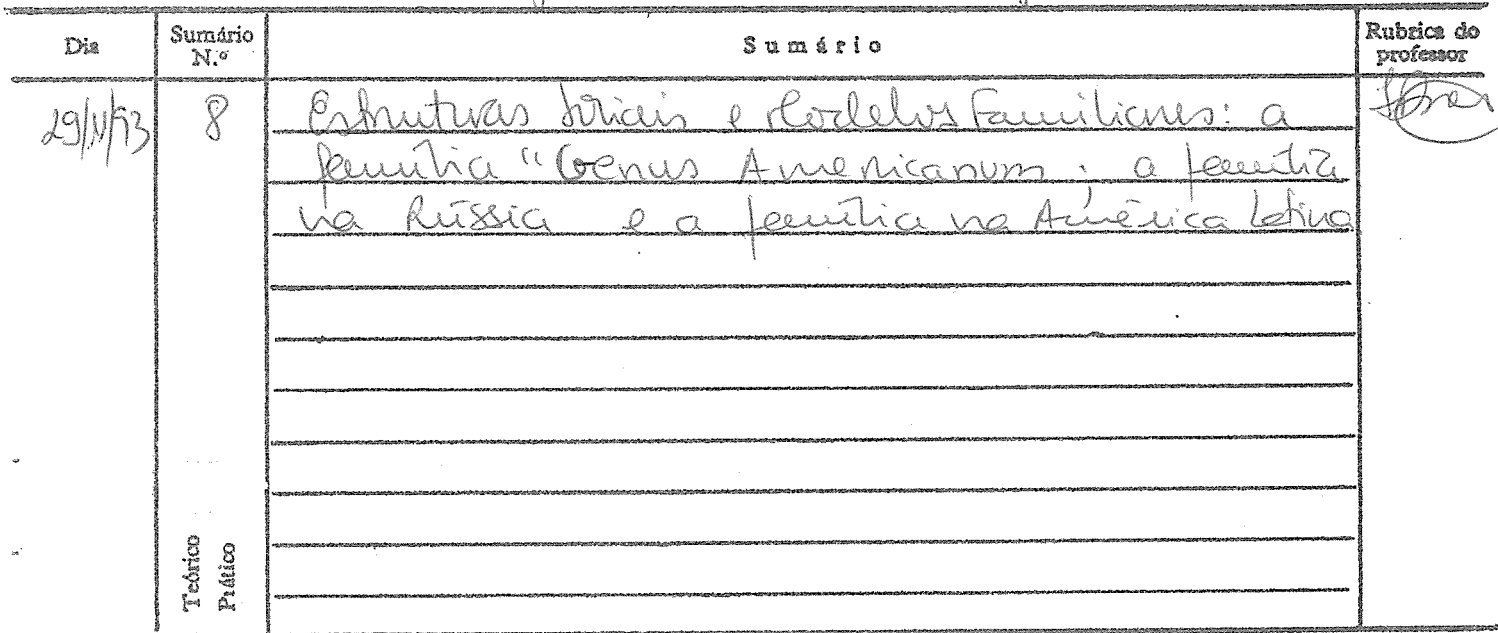 Dia
Sumário N.º
Sumário
Rubrica do professor
29/11/93
8
Estruturas Sociais e Modelos Familiares: a
família "Genus Americanum; a família
na Rússia e a família na América Latina
Teórico
Prático